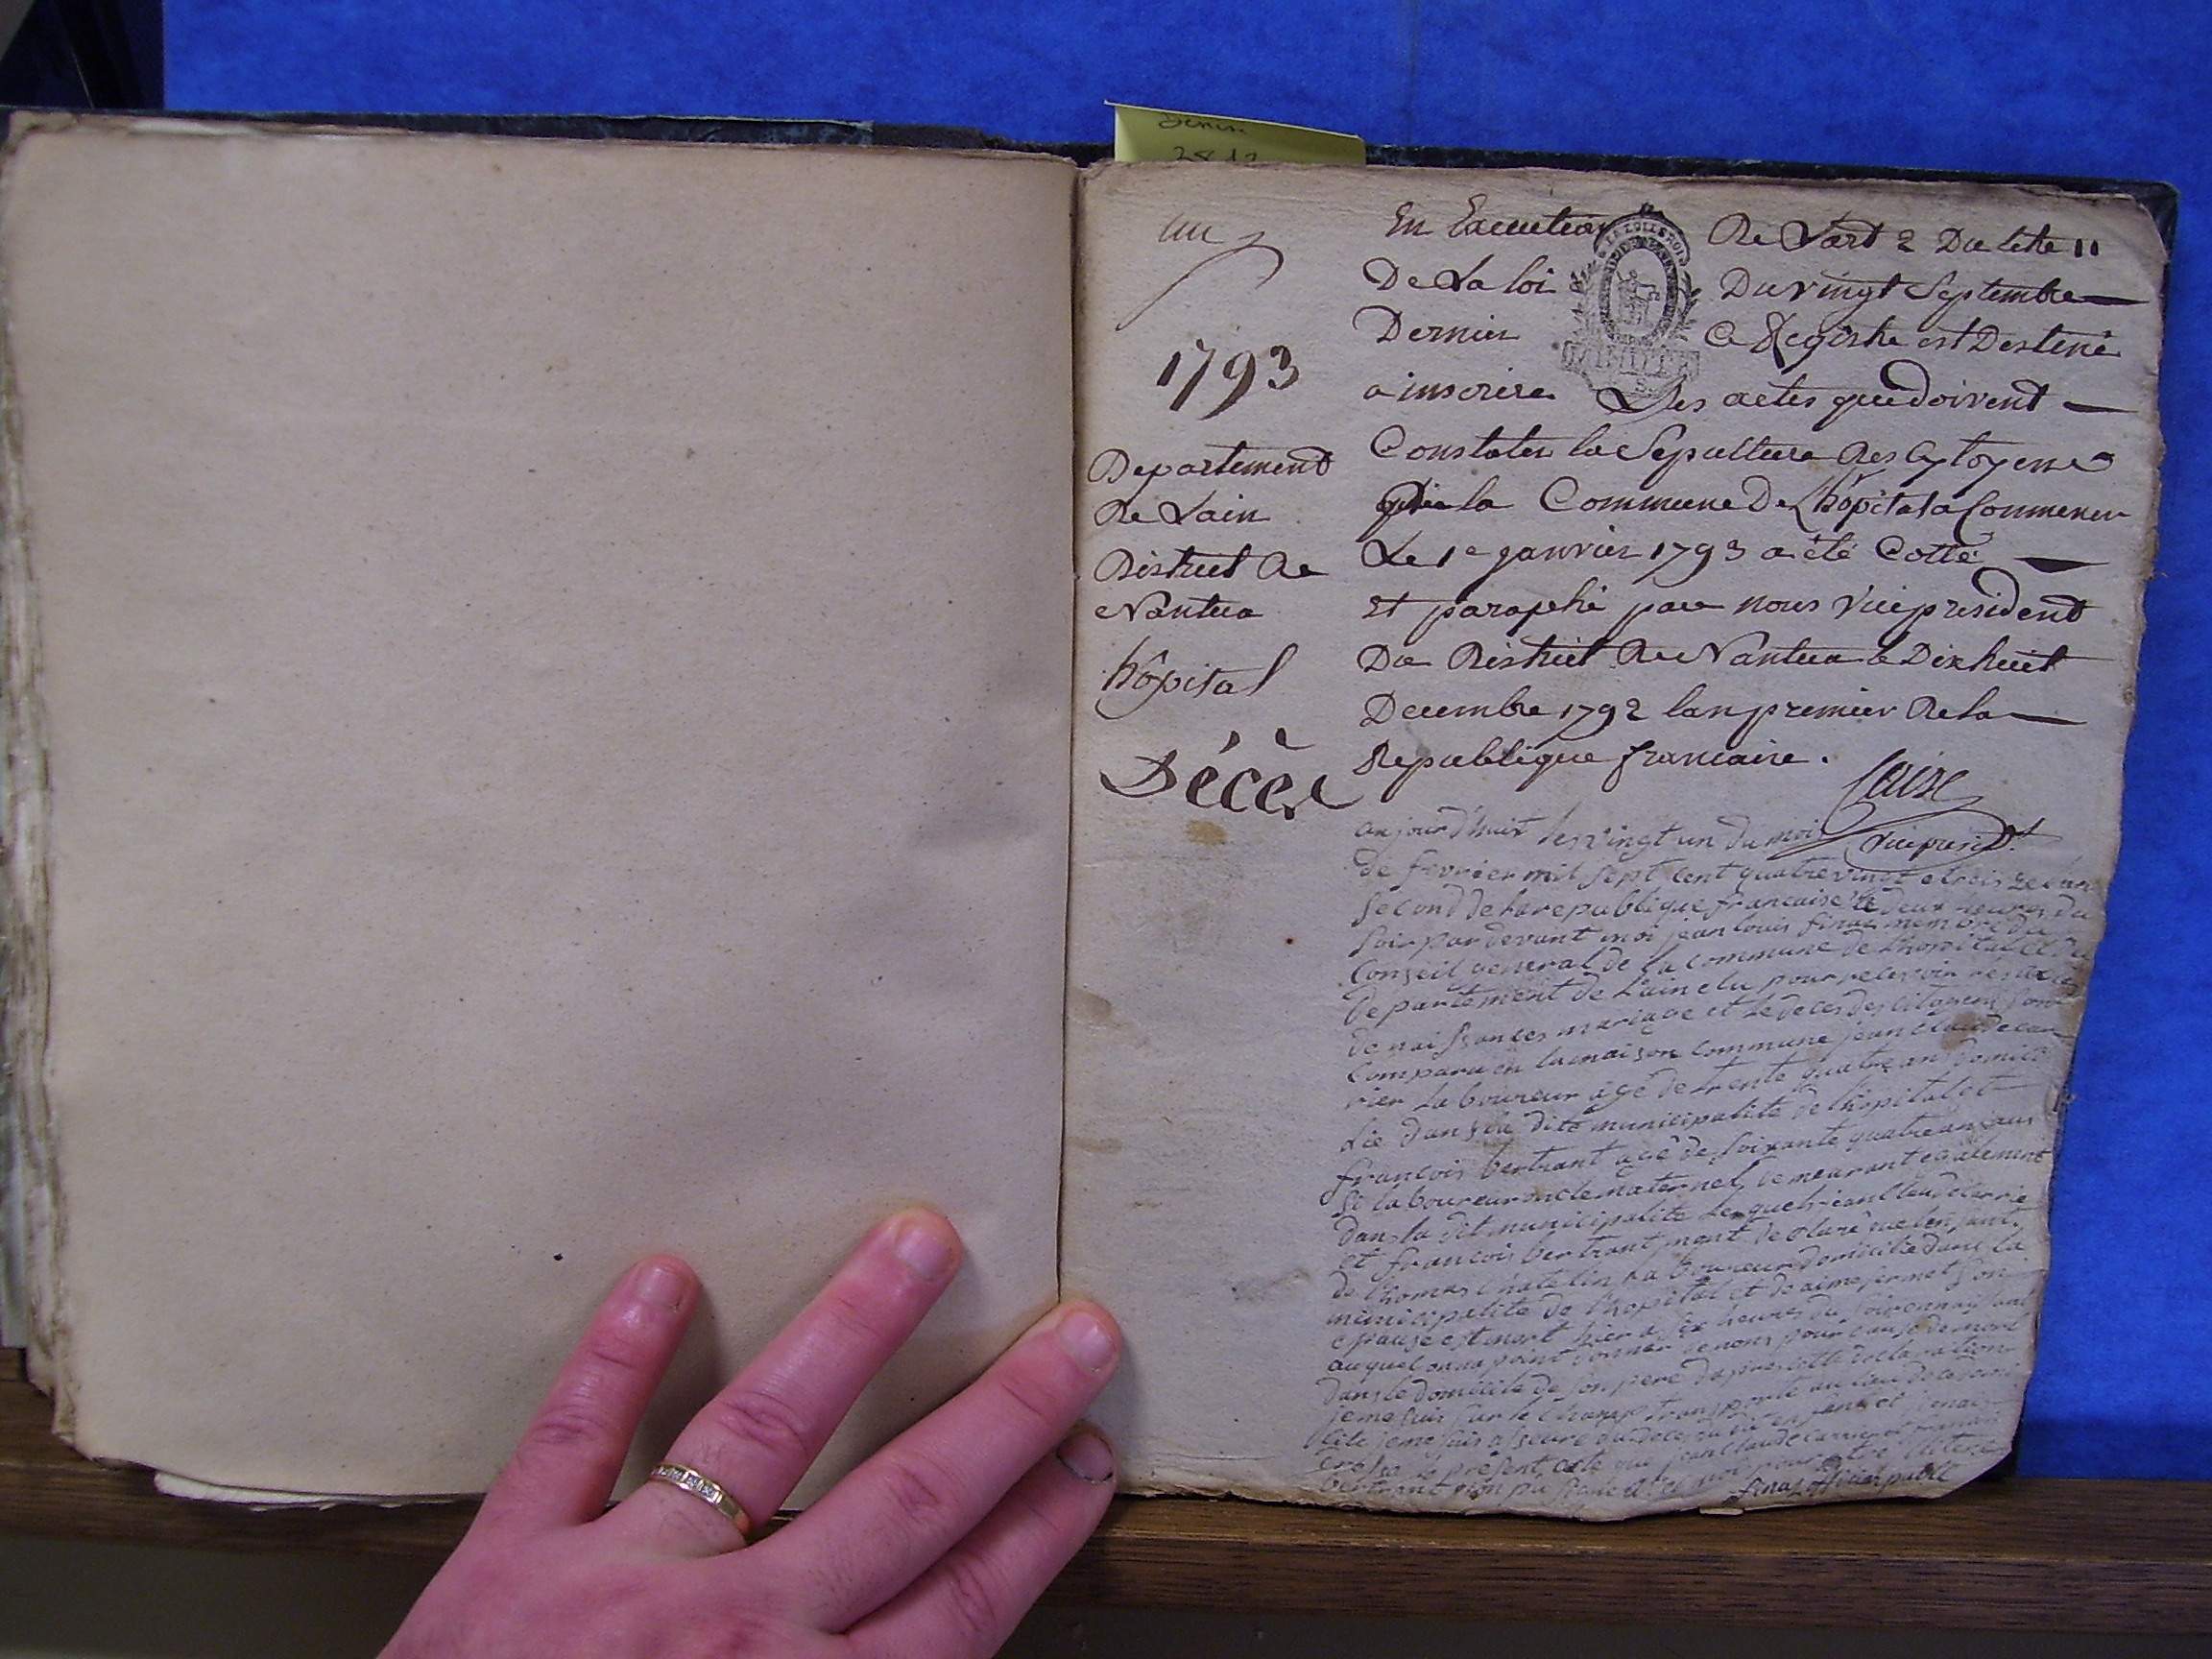 un
1793
Departement
De Lain
District De
Nantua
hôpital
Décès
En Execution De Lart 2 Du titre 11
De La loi Du vingt Septembre
Dernier Ce Registre est Destiné
a inscrire Les actes qui doivent
Constater la Sepulture Des Cytoyens
la Commune De Lhôpital a Commencer
Le 1e janvier 1793 a été Cotté
Et paraphé par nous Vice president
Du District De Nantua le Dix huit
Decembre 1792 lan premier De la
Republique francaise.
vice presidt.
aujourd'huit le vingt un du mois
de fevrier mil sept cent quatre vingt et treize
second de la republique francaise deux heures du
soir par devant moi jean louis finas membre du
Conseil general de la commune de Lhopital
departement de Lain elu pour recevoir
de naissances mariage et le deces des citoyens
Comparu en la maison commune jean claude car
rier laboureur agé de trente quatre an domici
lié dans la dite municipalité de lhopital et
francois bertrant agé de soixante quatre ans aus
si laboureur oncle maternel demeurant egalement
dans la dit municipalité Lesquels jean claude carrie
et francois bertrant mont declaré que lenfant
de thomas chatelin laboureur domicilié dans la
municipalité de lhopital et de aime fermet son
epause est mort hier a six heures du soir en naissant
auquel on na point donner de nom pour cause de mort
dans le domicile de son pere dapres cette declaration
je me suis sur le champ transporté au lieu de ce domi
cile je me suis asseuré du deces du dit enfant et jen ai
le présent acte que jean claude carrier et francois
bertrant non pu pour etre
finas officier public